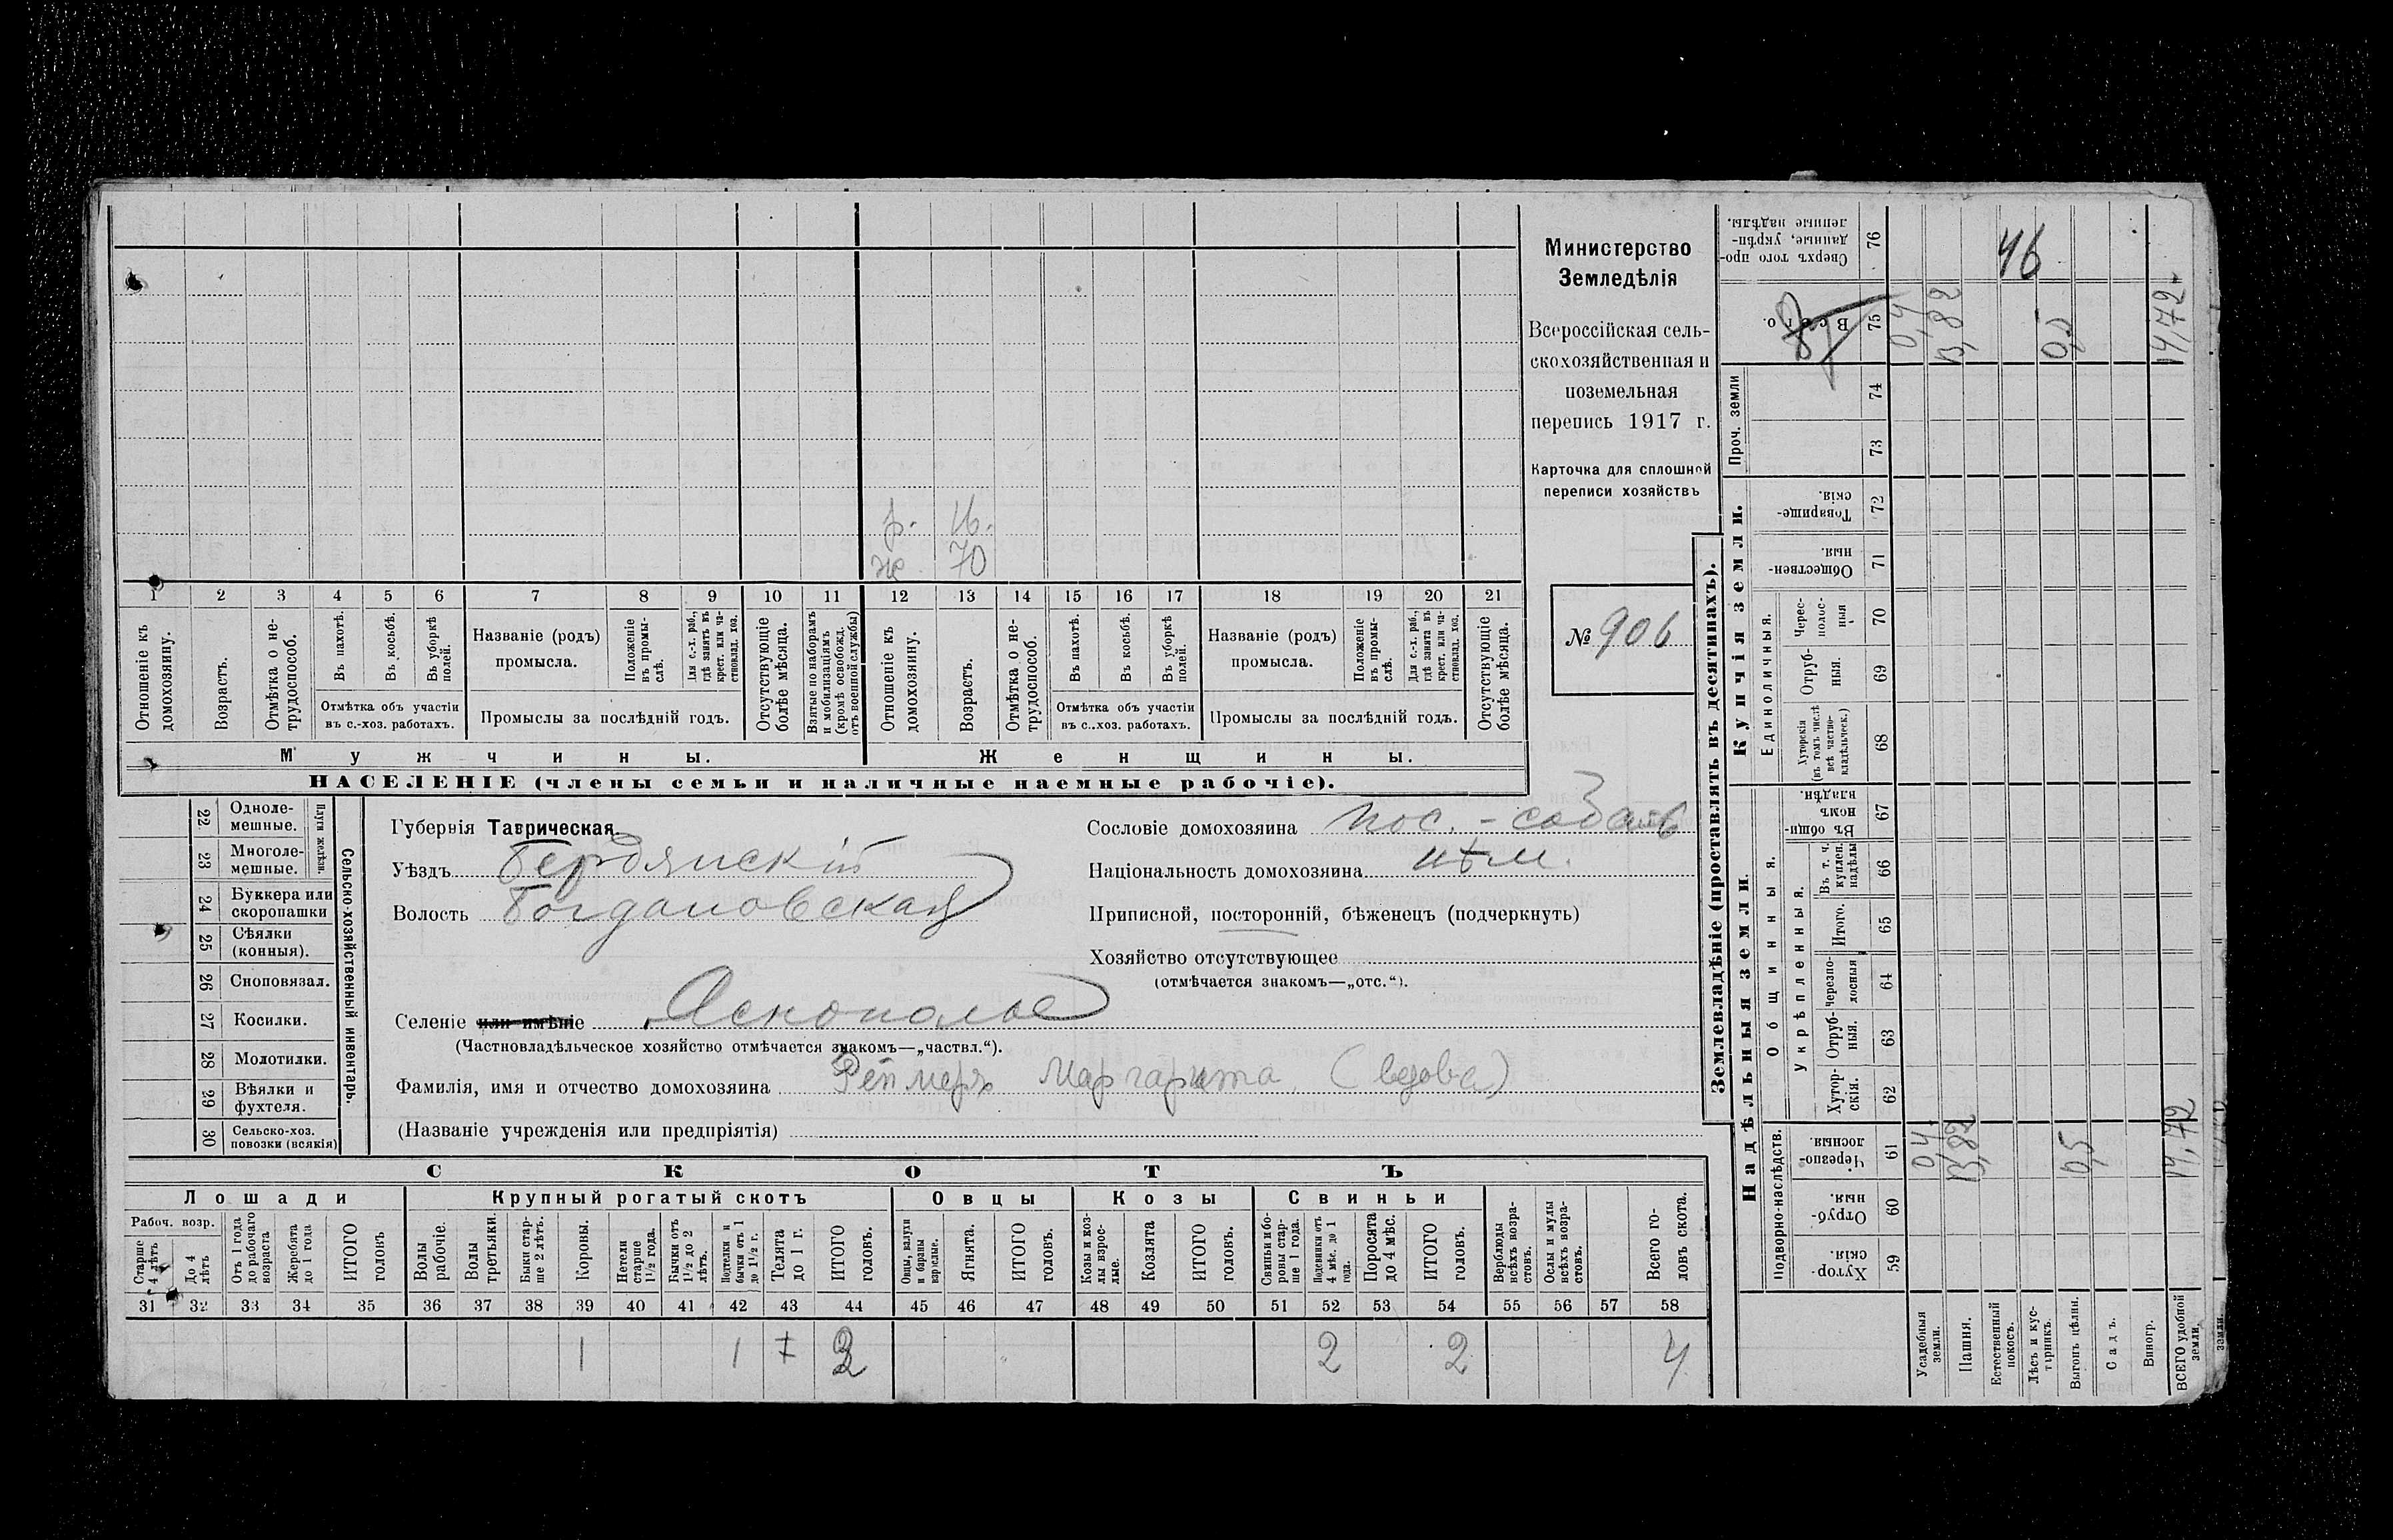 Министерство
Земледѣлія
Всероссійская сель-
скохозяйственная и
поземельная
перепись 1917 г.
Карточка для сплошной
переписи хозяйствъ
№ 906
р. 16.
ж. 70
1 2 3 4 5 6 7 8 9 10 11 12 13 14 15 16 17 18 19 20 21
Отношеніе къ домохозяину.
Возрастъ.
Отмѣтка о не-трудоспособ.
Въ пахотѣ.
Въ косьбѣ.
Въ уборкѣ полей.
Отмѣтка объ участіи
въ с.-хоз. работахъ.
Названіе (родъ)
промысла.
Положеніе въ промы-слѣ.
Для с.-х. раб., гдѣ занятъ въ крест. или ча-стновлад. хоз.
Промыслы за послѣдній годъ.
Отсутствующіе болѣе мѣсяца.
Взятые по наборамъ и мобилизаціямъ (кромѣ освобожд. отъ военной службы)
Отношеніе къ домохозяину.
Возрастъ.
Отмѣтка о не-трудоспособ.
Въ пахотѣ.
Въ косьбѣ.
Въ уборкѣ полей.
Отмѣтка объ участіи
въ с.-хоз. работахъ.
Названіе (родъ)
промысла.
Положеніе въ промы-слѣ.
Для с.-х. раб., гдѣ занята въ крест. или ча-стновлад. хоз.
Промыслы за послѣдній годъ.
Отсутствующіе болѣе мѣсяца.
Мужчины. Женщины.
НАСЕЛЕНІЕ (члены семьи и наличные наемные рабочіе).
Сельско-хозяйственный инвентарь.
Плуги желѣзн.
22 Одноле-мешные.
23 Многоле-мешные.
24 Буккера или скоропашки
25 Сѣялки (конныя).
26 Сноповязал.
27 Косилки.
28 Молотилки.
29 Вѣялки и фухтеля.
30 Сельско-хоз. повозки (всякія)
Губернія Таврическая
Уѣздъ Бердянскій
Волость Богдановская
Сословіе домохозяина пос. - собств
Національность домохозяина нѣм.
Приписной, посторонній, бѣженецъ (подчеркнуть)
Хозяйство отсутствующее
(отмѣчается знакомъ—„отс.“).
Селеніе или имѣніе Яснополье
(Частновладѣльческое хозяйство отмѣчается знакомъ—„частвл.“).
Фамилія, имя и отчество домохозяина Реймеръ Маргарита (вдова)
(Названіе учрежденія или предпріятія)
СКОТЪ
Лошади Крупный рогатый скотъ Овцы Козы Свиньи
Рабоч. возр.
Старше 4 лѣтъ
До 4 лѣтъ
Отъ 1 года до рабочаго возраста
Жеребята до 1 года
ИТОГО головъ
Волы рабочіе.
Волы третьяки.
Быки стар-ше 2 лѣтъ.
Коровы.
Нетели старше 1½ года.
Бычки отъ 1½ до 2 лѣтъ.
Подтелки и бычки отъ 1 до 1½ г.
Телята до 1 г.
ИТОГО головъ.
Овцы, валухи и бараны взрослые.
Ягнята.
ИТОГО головъ.
Козы и коз-лы взрос-лые.
Козлята
ИТОГО головъ.
Свиньи бо-ровы стар-ше 1 года.
Подсвинки отъ 4 мѣс. до 1 года.
Поросята до 4 мѣс.
ИТОГО головъ.
Верблюды всѣхъ возра-стовъ.
Ослы и мулы всѣхъ возра-стовъ.
Всего го-ловъ скота.
31 32 33 34 35 36 37 38 39 40 41 42 43 44 45 46 47 48 49 50 51 52 53 54 55 56 57 58
1 1 2 2 2 4
Землевладѣніе (проставлять въ десятинахъ).
Надѣльныя земли
Купчія земли.
Подворно-наслѣдств.
Общинныя.
Укрѣпленныя.
Единоличныя.
Проч. земли
Хутор-скія. 59
Отруб-ныя. 60
Черезпо-лосныя. 61
Хутор-скія. 62
Отруб-ныя. 63
Черезпо-лосныя 64
Итого. 65
Въ т. ч. куплен. надѣлы 66
Въ общи-номъ владѣн. 67
Хуторскія (въ томъ числѣ всѣ частно-владѣльческ.) 68
Отруб-ныя. 69
Черес-полос-ныя 70
Обществен-ныя. 71
Товарище-скія. 72
73
74
Всего. 75
Сверхъ того про-данные, укрѣп-ленные надѣлы. 76
Усадебныя земли. 0,4 0,4
Пашня. 13,82 13,82
Естественный покосъ.
Лѣсъ и кус-тарникъ.
Выгонъ цѣлин. 0,5 0,5
Садъ.
Виногр.
ВСЕГО удобной земли. 14,72 14,72
46